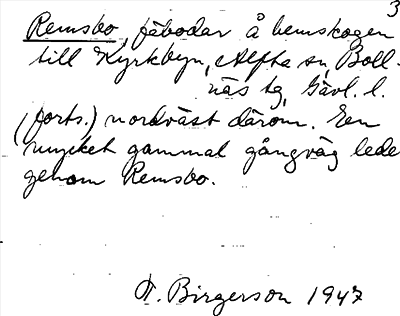 3
Remsbo, fäbodar å hemskogen
till Kyrkbyn, Alfta sn, Boll-
näs tg, Gävl. l.
(forts.) nordväst därom. En
mycket gammal gångväg lede
genom Remsbo.
A. Birgerson 1947